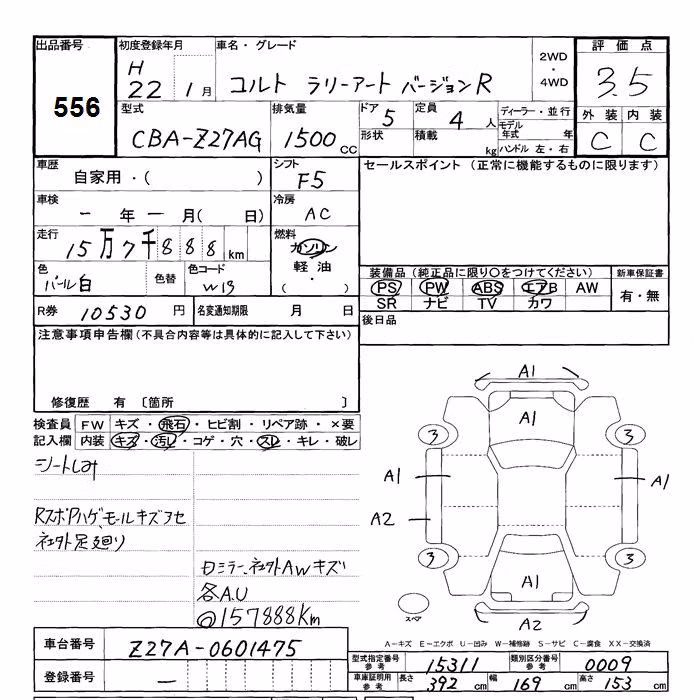 出品番号 初度登録年月 車名・グレード 2WD・4WD 評価点
556 H22 1月 コルト ラリーアート バージョンR 3.5
型式 排気量 ドア 5 定員 4人 ディーラー・並行 外装 内装
CBA-Z27AG 1500CC 形状 積載 kg モデル年式 年 ハンドル 左・右 C C
車歴 シフト セールスポイント (正常に機能するものに限ります)
自家用・( ) F5
車検 冷房
ー年ー月( 日) AC
走行 燃料
15万7千888km ガソリン
軽油
・
( )
色 色替 色コード 装備品(純正品に限り○をつけてください) 新車保証書
パール白 W13 PS PW ABS エアB AW 有・無
SR ナビ TV カワ
R券 10530円 名変通知期限 月 日 後日品
注意事項申告欄(不具合内容等は具体的に記入して下さい)
修復歴 有 〔箇所 〕
検査員 FW キズ・飛石・ヒビ割・リペア跡・×要
記入欄 内装 キズ・汚レ・コゲ・穴・スレ・キレ・破レ
シートしみ
RスポPハゲ、モールキズアセ
社外足廻り
ロミラー、社外AWキズ
各A.U
@157888Km
A1
A1
3 3
A1 A1
A2
3 3
A1
スペア A2
A-キズ E-エクボ U-凹み W-補修跡 S-サビ C-腐食 XX-交換済
車台番号 Z27A-0601475
登録番号 ー
型式指定番号 参考 15311 類別区分番号 参考 0009
車庫証明用 参考 長さ 392cm 幅 169cm 高さ 153cm